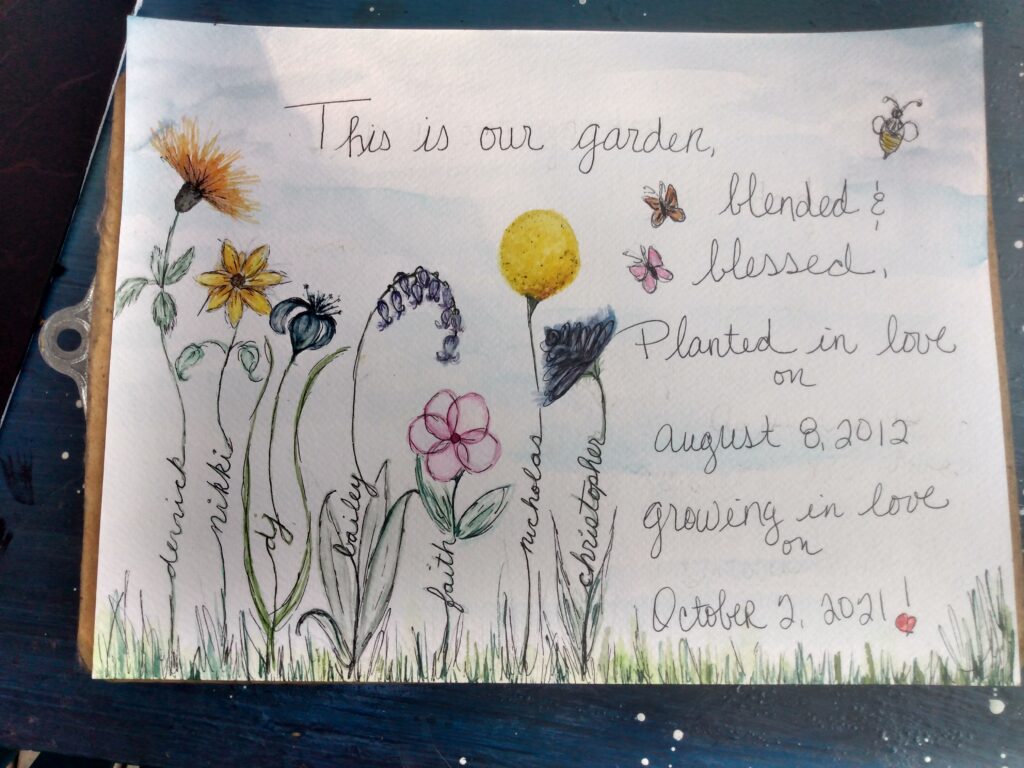 This is our garden,
blended &
blessed.
Planted in love
on
august 8, 2012
growing in love
on
October 2, 2021!
derrick
nikki
dj
bailey
faith
nicholas
christopher